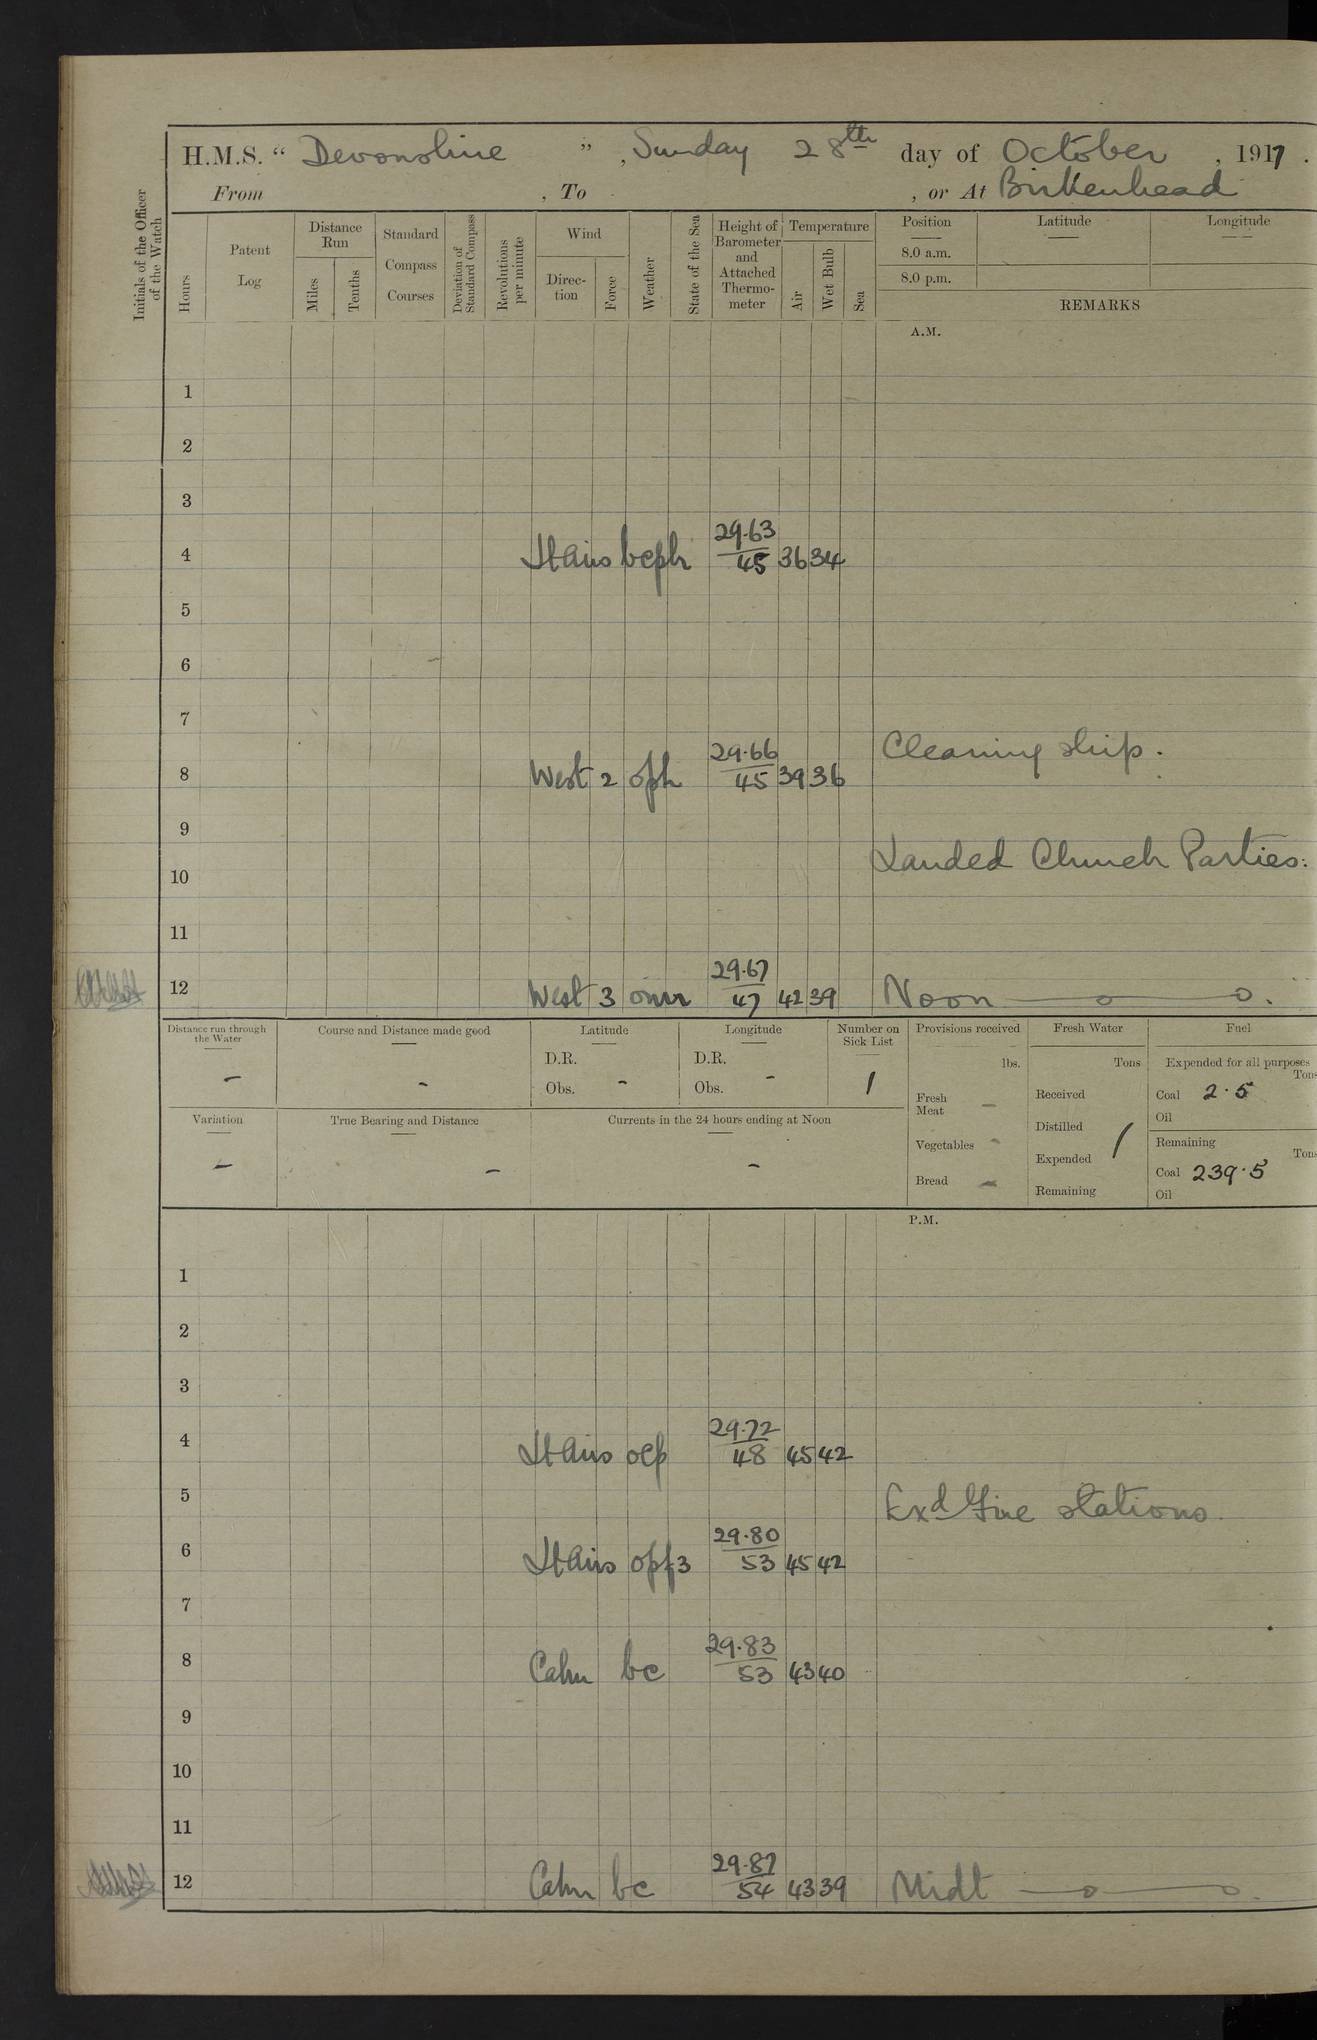 H.M.S. “ Devonshire ” , Sunday 28th day of October , 1917 .
From , To , or At Birkenhead
Initials of the Officer of the Watch
Hours
Patent Log
Distance Run
Miles
Tenths
Standard Compass Courses
Deviation of Standard Compass
Revolutions per minute
Wind
Direction
Force
Weather
State of the Sea
Height of Barometer and Attached Thermometer
Temperature
Air
Wet Bulb
Sea
Position
Latitude
Longitude
8.0 a.m.
8.0 p.m.
REMARKS
A.M.
1
2
3
4 Lt Airs bcph 29.63/45 36 34
5
6
7
Cleaning ship.
8 West 2 oph 29.66/45 39 36
9
Landed Church Parties.
10
11
12 West 3 omr 29.67/47 42 39 Noon
Distance run through the Water
–
Course and Distance made good
–
Latitude
D.R.
Obs. –
Longitude
D.R.
Obs. –
Number on Sick List
1
Variation
–
True Bearing and Distance
–
Currents in the 24 hours ending at Noon
–
Provisions received
lbs.
Fresh Meat –
Vegetables –
Bread –
Fresh Water
Tons
Received
Distilled
Expended
Remaining
Fuel
Expended for all purposes
Tons
Coal 2.5
Oil
Remaining
Tons
Coal 239.5
Oil
P.M.
1
2
3
4 Lt Airs ocp 29.72/48 45 42
5
Exd Fire stations.
6 Lt Airs opf3 29.80/53 45 42
7
8 Calm bc 29.83/53 43 40
9
10
11
12 Calm bc 29.87/54 43 39 Midt